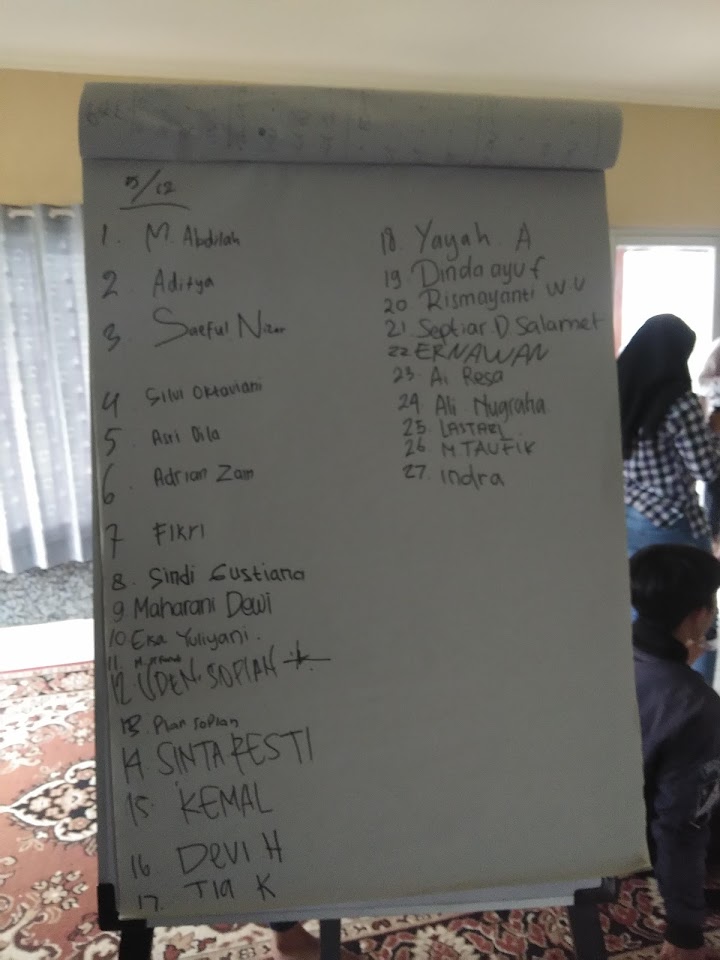 5/12
1. M. Abdilah
2 Aditya
3 Saeful
4 Silvi Oktaviani
5 Asri Dila
6 Adrian Zam
7 FIKRI
8. Sindi Gustiana
9 Maharani Dewi
10 Elsa Yuliyani.
11.
12. UDEN. SOPIAN
13. Pian Sopian
14 SINTA RESTI
15. KEMAL
16 DEVI H
17. TIA K
18. Yayah. A
19 Dinda ayu f
20 Rismayanti W.U
21 Septiar D Salamet
22 ERNAWAN
23. Ai Resa
24 Ali Nugraha
25. LASTARI
26 M TAUFIK
27. Indra